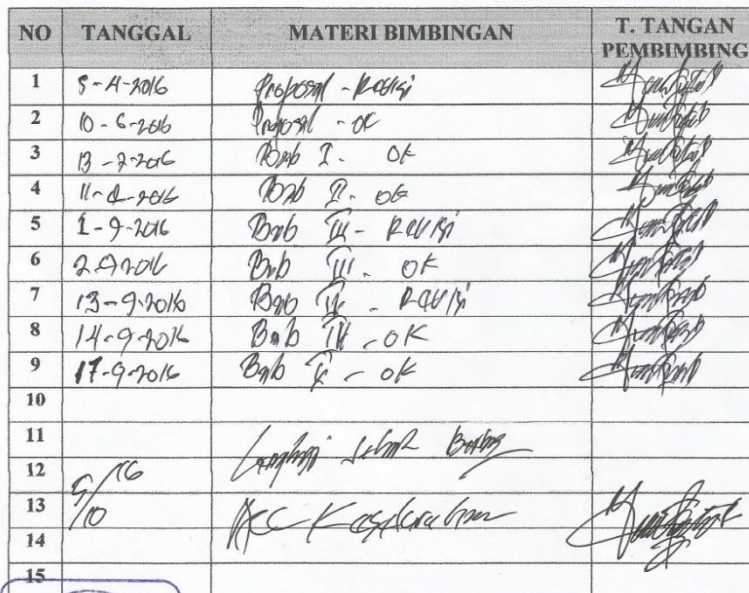 NO TANGGAL MATERI BIMBINGAN T. TANGAN PEMBIMBING
1 5-4-2016 Proposal - Revisi
2 10-6-2016 Proposal - OK
3 13-7-2016 Bab I - OK
4 11-8-2016 Bab II - OK
5 1-9-2016 Bab III - Revisi
6 2-9-2016 Bab III - OK
7 13-9-2016 Bab IV - Revisi
8 14-9-2016 Bab IV - OK
9 17-9-2016 Bab V - OK
10
11
12
13 5/10 16 ACC Keseluruhan
14
15